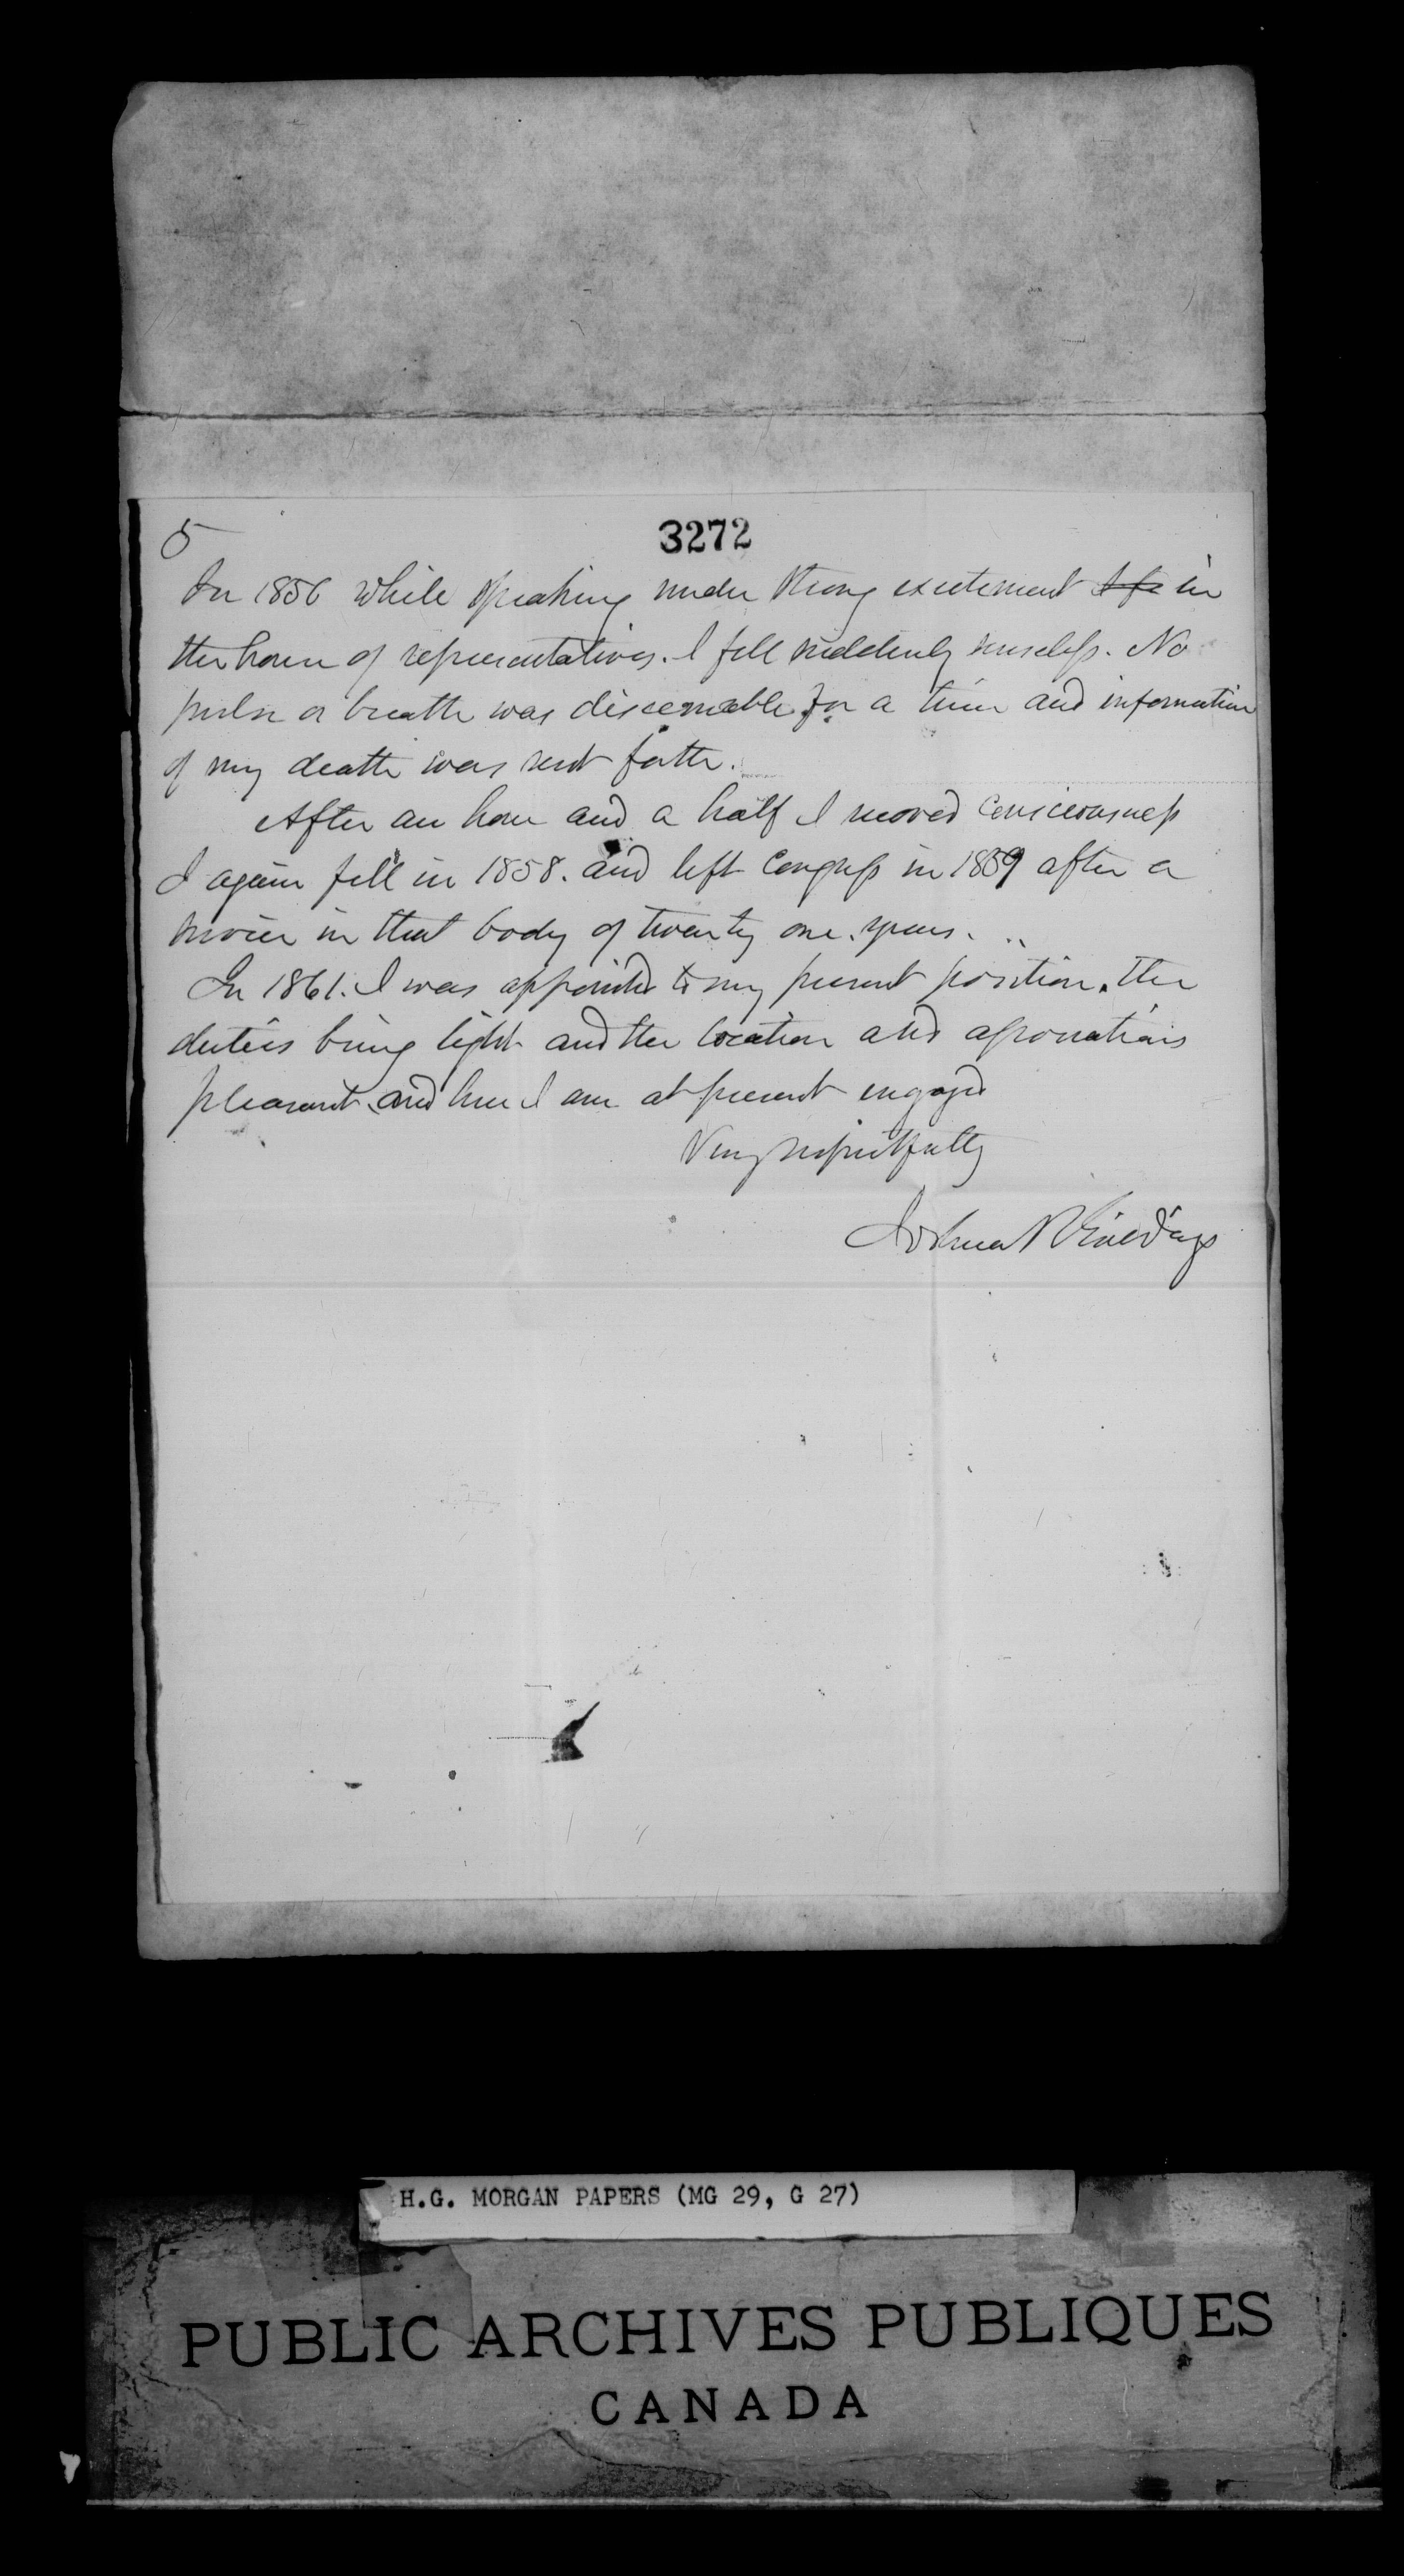 5
3272
In 1856 while speaking under strong excitement I fe in
the house of representatives. I fell suddenly senseless. No
pulse or breath was discernable for a time and information
of my death was sent forth.
After an hour and a half I moved consciousness
I again fell in 1858. and left Congress in 1859 after a
service in that body of twenty one years.
In 1861. I was appointed to my present position. The
duties being light and the location and associations
pleasant and here I am at present engaged
Very respectfully
Joshua R Giddings
H.G. MORGAN PAPERS (MG 29, G 27)
PUBLIC ARCHIVES PUBLIQUES
CANADA